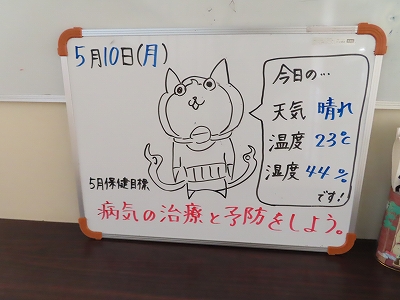 5月10日(月)
今日の…
天気 晴れ
温度 23℃
湿度 44%
です!
5月保健目標
病気の治療と予防をしよう。